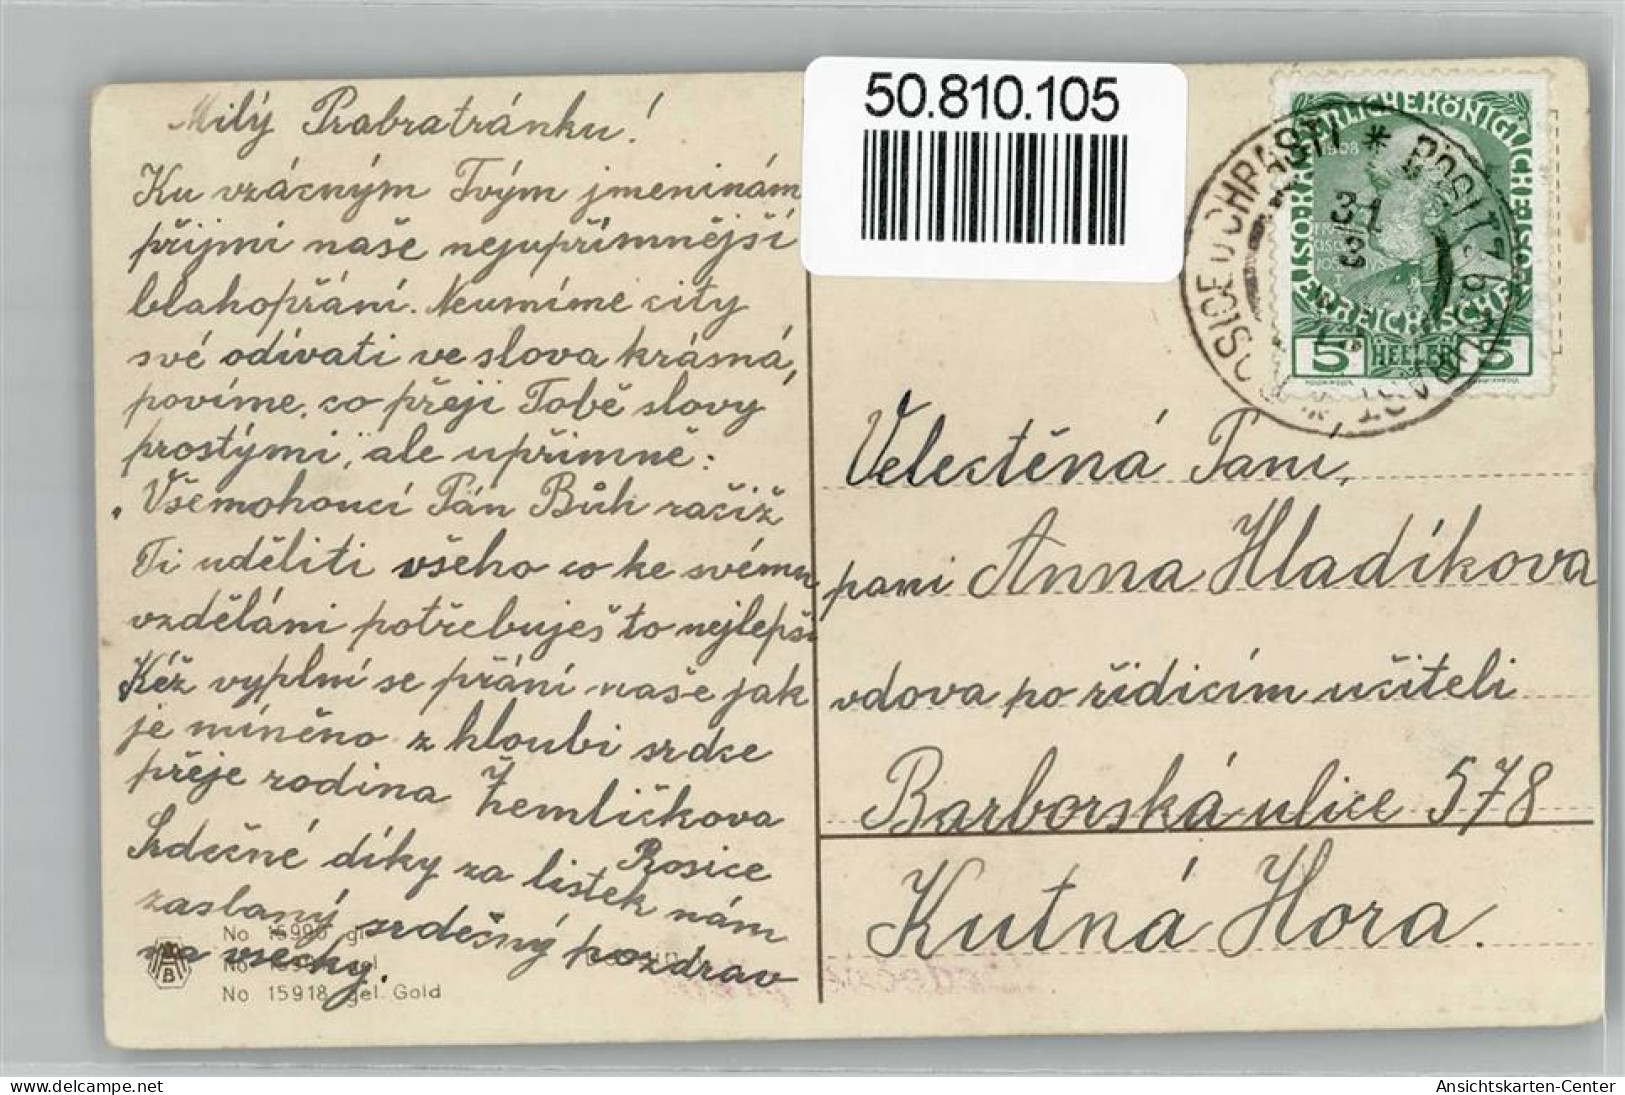 50.810.105
Milý Prabratránku!
Ku vzácným Tvým jmeninám
přijmi naše nejupřímnější
blahopřání. Neumíme city
své odívati ve slova krásná,
povíme, co přeji Tobě slovy
prostými, ale upřimně:
Všemohoucí Pán Bůh račiž
Ti uděliti všeho co ke svému
vzděláni potřebuješ to nejlepší
Kéž vyplní se přání naše jak
je míněno z hloubi srdce
přeje rodina Žemličkova
Rosice
Srdečné díky za lístek nám
zaslaný srděsný pozdrav
na vsecky.
No 15918 gel. Gold
KAISERLICHE KÖNIGLICHE
ÖSTERREICHISCHE
1908
5 HELLER 5
ROSICE U CHRASTI * ROSITZ
31
8
Velectěná Paní,
pani Anna Hladíkova
vdova po řídicím učiteli
Barborská ulice 578
Kutná Hora.
oldthing.com
Ansichtskarten-Center